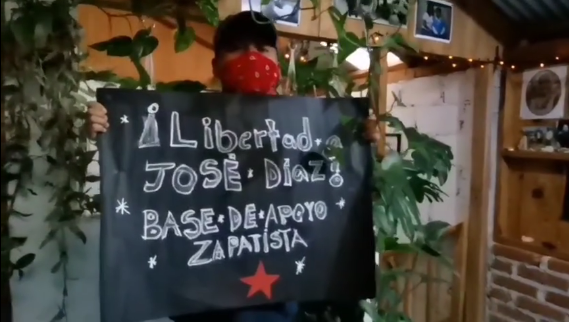 ¡Libertad·a
JOSÉ·Díaz!
BASE·DE·APOYO
ZAPATISTA